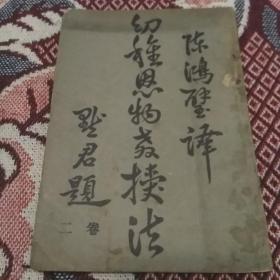 陈鸿璧译
幼稚恩物教授法
默君题
卷二